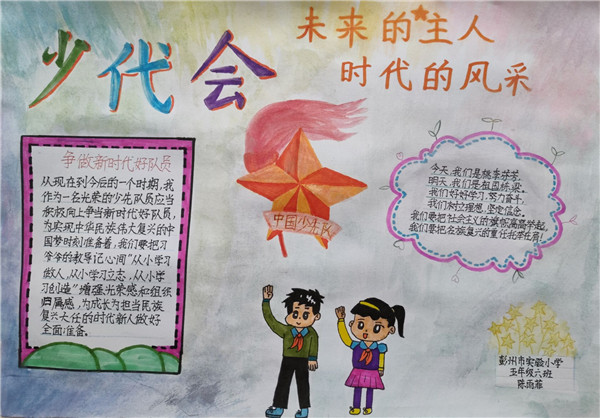 少代会
未来的主人
时代的风采
争做新时代好队员
从现在到今后的一个时期,我
作为一名光荣的少先队员应当
积极向上争当新时代好队员,
为实现中华民族伟大复兴的中
国梦时刻准备着,我们要把习
爷爷的教导记心间"从小学习
做人,从小学习立志,从小学
习创造"增强光荣感和组织
归属感,为成长为担当民族
复兴大任的时代新人做好
全面准备。
中国少先队
今天,我们是桃李芬芳
明天,我们是祖国栋梁。
我们好好学习,努力奋斗,
我们树立理想,坚定信念。
我们要把社会主义的旗帜高高举起,
我们要把民族复兴的重任扛在肩!
彭州市实验小学
五年级六班
陈雨菲